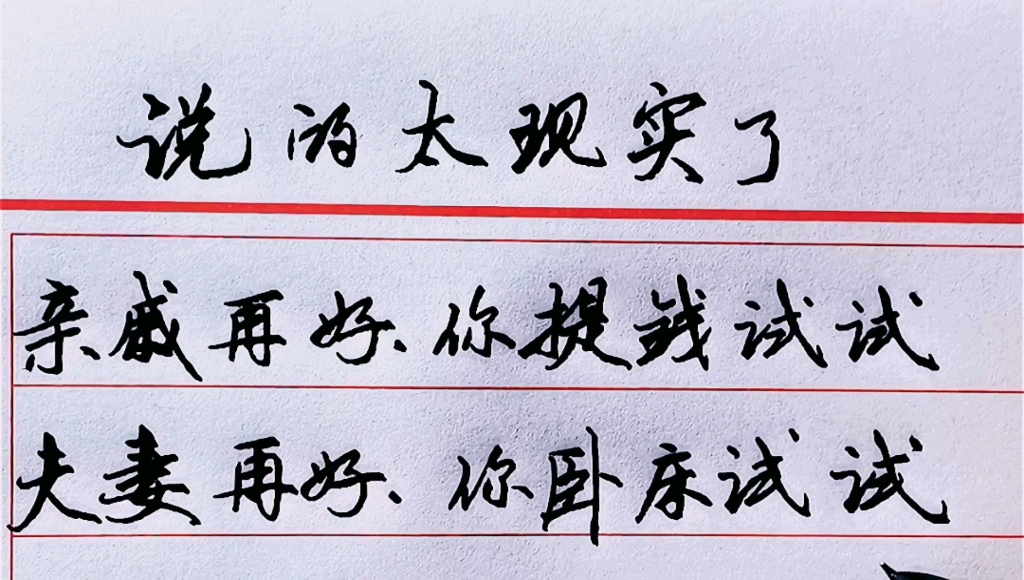 说的太现实了
亲戚再好、你提钱试试
夫妻再好、你卧床试试